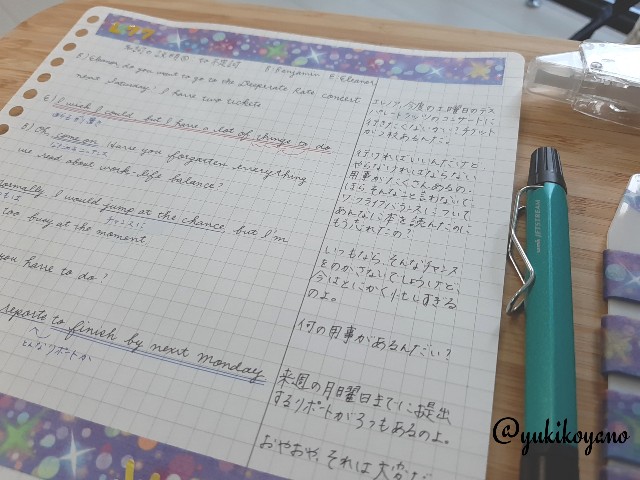 B: Benjamin E: Eleanor
B) Eleanor, do you want to go to the Desperate Rats concert
next Saturday? I have two tickets
E) I wish I could but I have a lot of things to do
B) Oh, come on! Have you forgotten everything
we read about work-life balance?
Normally, I would jump at the chance, but I'm
too busy at the moment
you have to do?
reports to finish by next Monday
エレノア、今度の土曜日のデス
パレートラッツのコンサートに
行きたくないかい？チケット
が2枚あるんだ。
行ければいいんだけど、
やらなければならない
用事がたくさんあるの。
ほら、そんなこと言わないで。
ワークライフバランスについて
あんなに本を読んだのに
もう忘れたの？
いつもなら、そんなチャンス
をのがさないでしょうけど、
今はとにかく忙しすぎる
のよ。
何の用事があるんだい？
来週の月曜日までに提出
するリポートが3つもあるのよ。
おやおや、それは大変だ
uni JETSTREAM
@yukikoyano